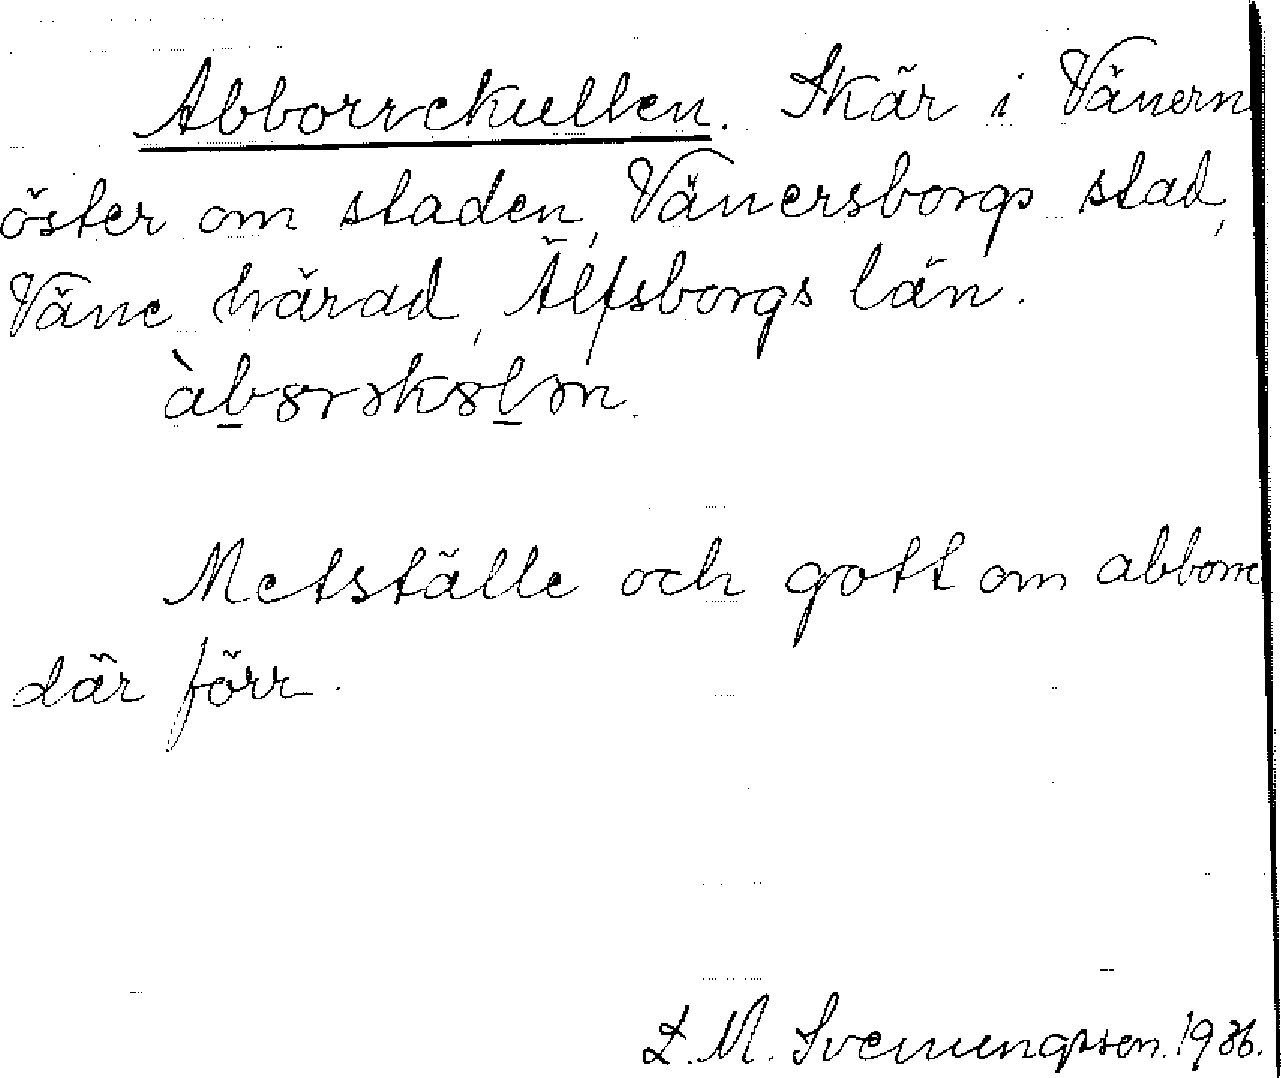 Abborrekullen. Skär i Vänern
öster om staden, Vänersborgs stad,
Väne härad, Älfsborgs län.
Metställe och gott om abborre
där förr.
L. M. Svenungsson. 1936.